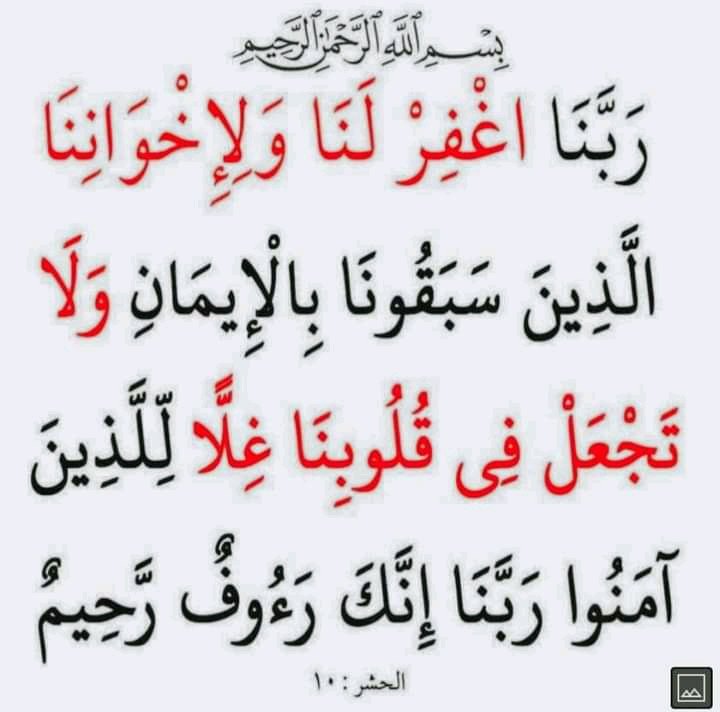 بِسْمِ ٱللَّهِ ٱلرَّحْمَٰنِ ٱلرَّحِيمِ
رَبَّنَا اغْفِرْ لَنَا وَلِإِخْوَانِنَا
الَّذِينَ سَبَقُونَا بِالْإِيمَانِ وَلَا
تَجْعَلْ فِى قُلُوبِنَا غِلًّا لِّلَّذِينَ
آمَنُوا رَبَّنَا إِنَّكَ رَءُوفٌ رَّحِيمٌ
الحشر : ١٠